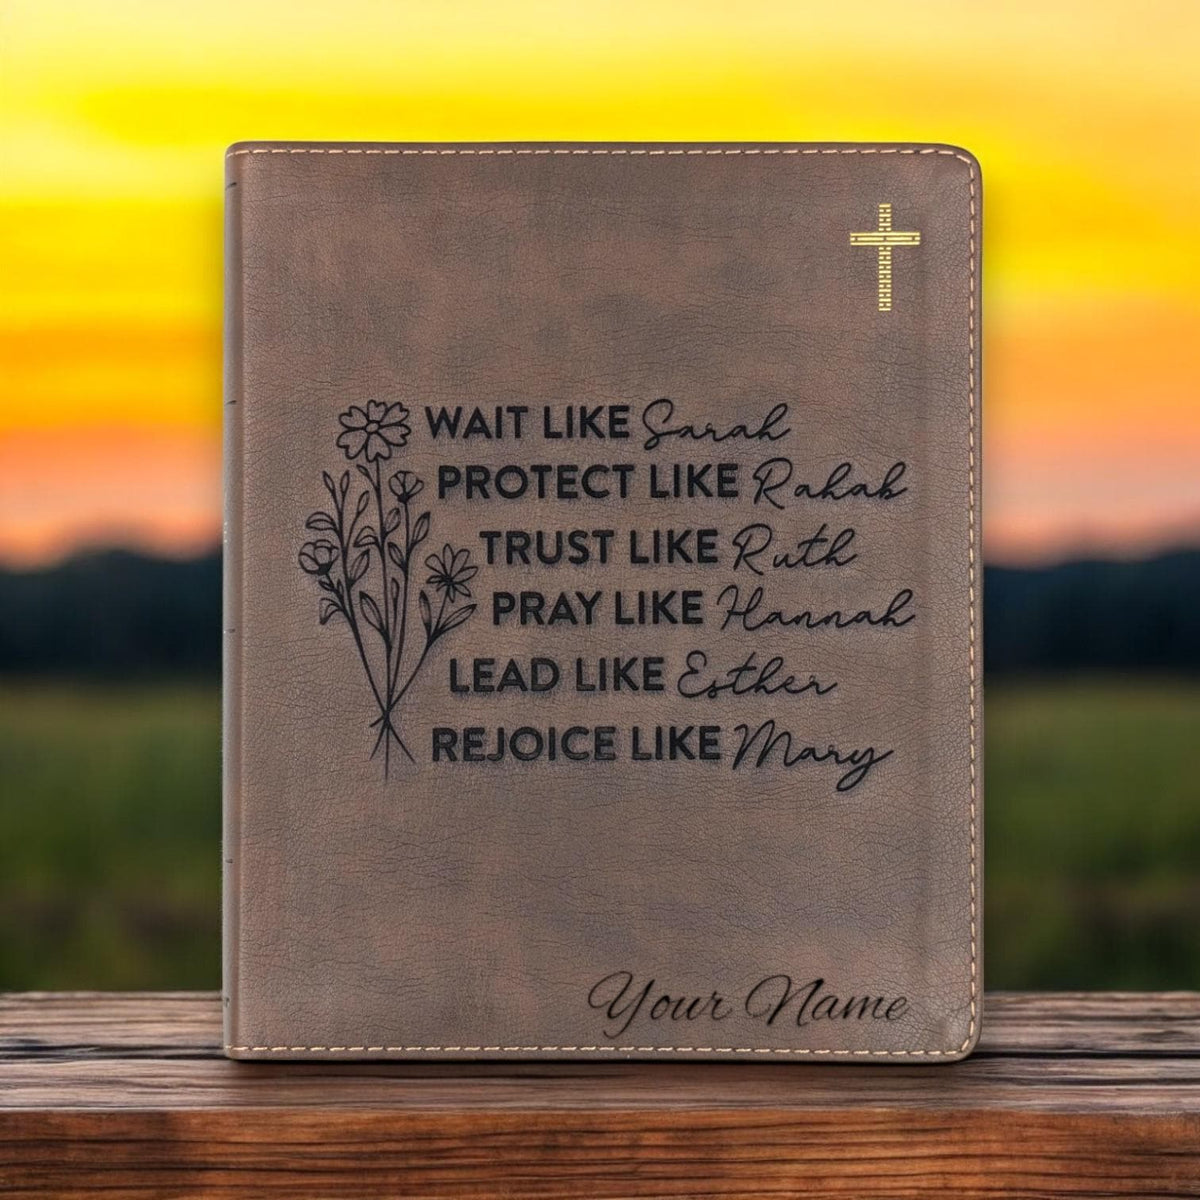 WAIT LIKE Sarah
PROTECT LIKE Rahab
TRUST LIKE Ruth
PRAY LIKE Hannah
LEAD LIKE Esther
REJOICE LIKE Mary
Your Name